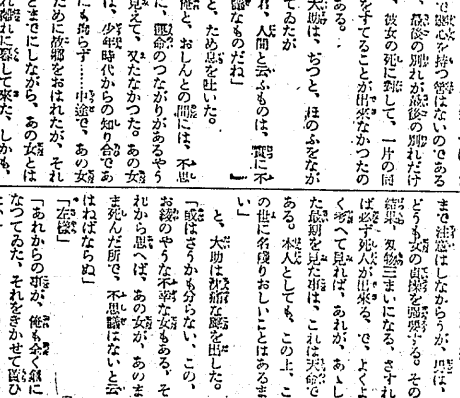 で惡心を持つ筈はないのである
最後の別れが最後の別れだけ
彼女の死に對して、一片の同
をすてることが出來なかつたの
ある。
大助は、ぢつと、ほのふをなが
てゐたが
人間と云ふものは、實に不
議なものだね」
と、ため息を吐いた。
俺と、おしんとの間には、不思
に、運命のつながりがあるやう
見えて、又たなかつた。あの女
は、少年時代からの知り合であ
にも拘らず……中途で、あの女
ために故郷をおはれたが、それ
とまでにしながら、あの女とは
れ〴〵に暮して來た。しかも、
まで注意はしなからうが、男は、
どうも女の貞操を強要する。その
結果、刃物三まいになる。さすれ
ば必ず死人が出來る。で、よくよ
く考へて見れば、あれが、あゝし
た最期を見た事は、これは天命で
ある。本人としても、この上、こ
の世に名殘りおしいことはあるま
い」
と、大助は沈痛な聲を出した。
「或はさうかも分らない、この、
お綾のやうな不幸な女もある。そ
れから思へば、あの女が、あのま
ま死んだ所で、不思議はないと云
はねばならぬ」
「左樣」
「あれからの事が、俺も全く氣に
なつてゐた、それをきかせて貰ひ